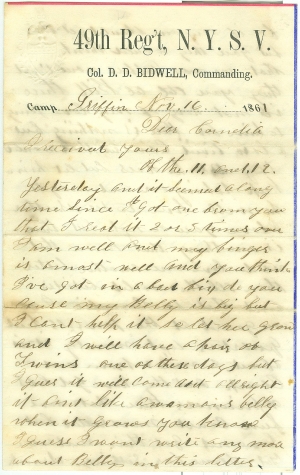 49th Reg't, N. Y. S. V.
Col. D. D. BIDWELL, Commanding.
Camp Griffin Nov. 16, 1861
Dear Cornelia
I received yours
of the 11. and 12.
yesterday and it seemed a long
time since I got one from you
that I read it 2 or 3 times over
I am well and my finger
is amost well and you think
I've got in a bad big do you
cause my belly is big but
I cant help it so let her grow
and I will have a pair of
Twins one of these days but
I gues it will come out all right
it aint like a womans belly
when it grows you know
I guess I wont write any moe
about Belly in this letter